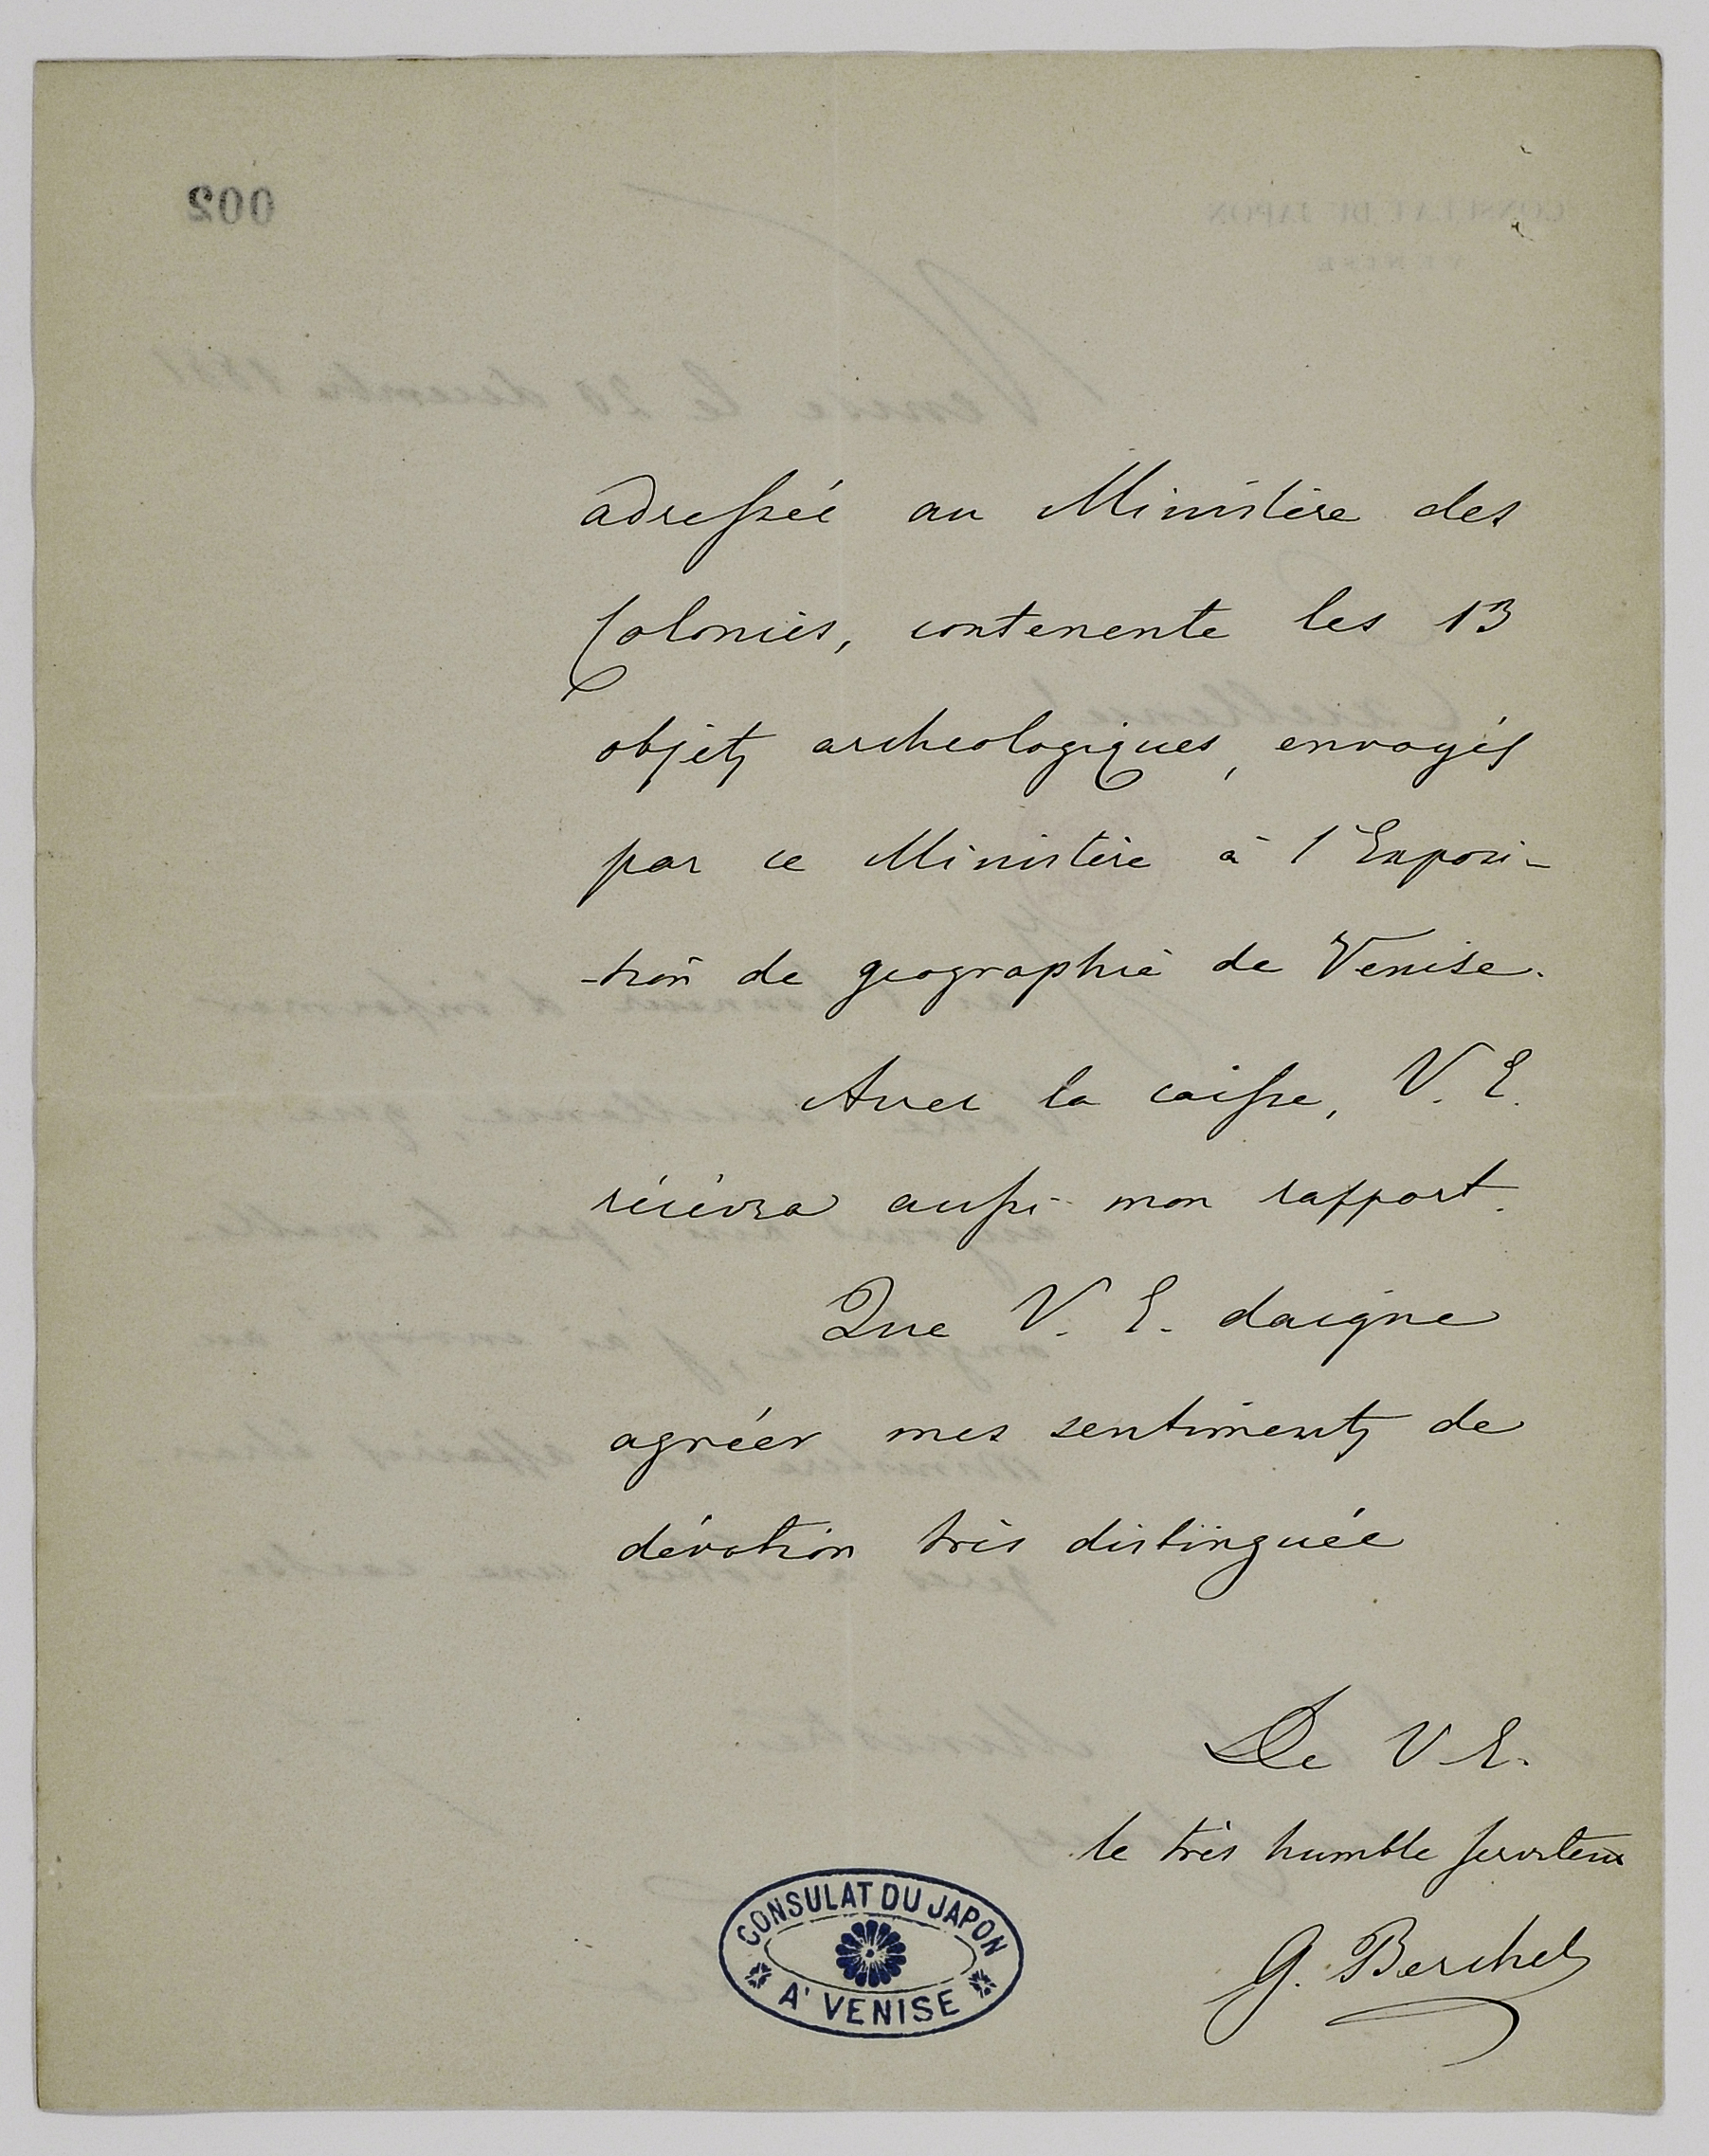 adressée au Ministère des
Colonies, contenente les 13
objets archeologiques, envoyés
par ce Ministère à l'Exposi-
-tion de geographie de Venise.
Avec la caisse, V. E.
récévra aussi mon rapport.
Que V. E. daigne
agréér mes sentiments de
dévotion très distinguée
De V. E.
le très humble serviteur
G. Berchet
CONSULAT DU JAPON
A' VENISE
002
CONSULAT DU JAPON
VENISE
Venise le 20 decembre 1881
Excellence